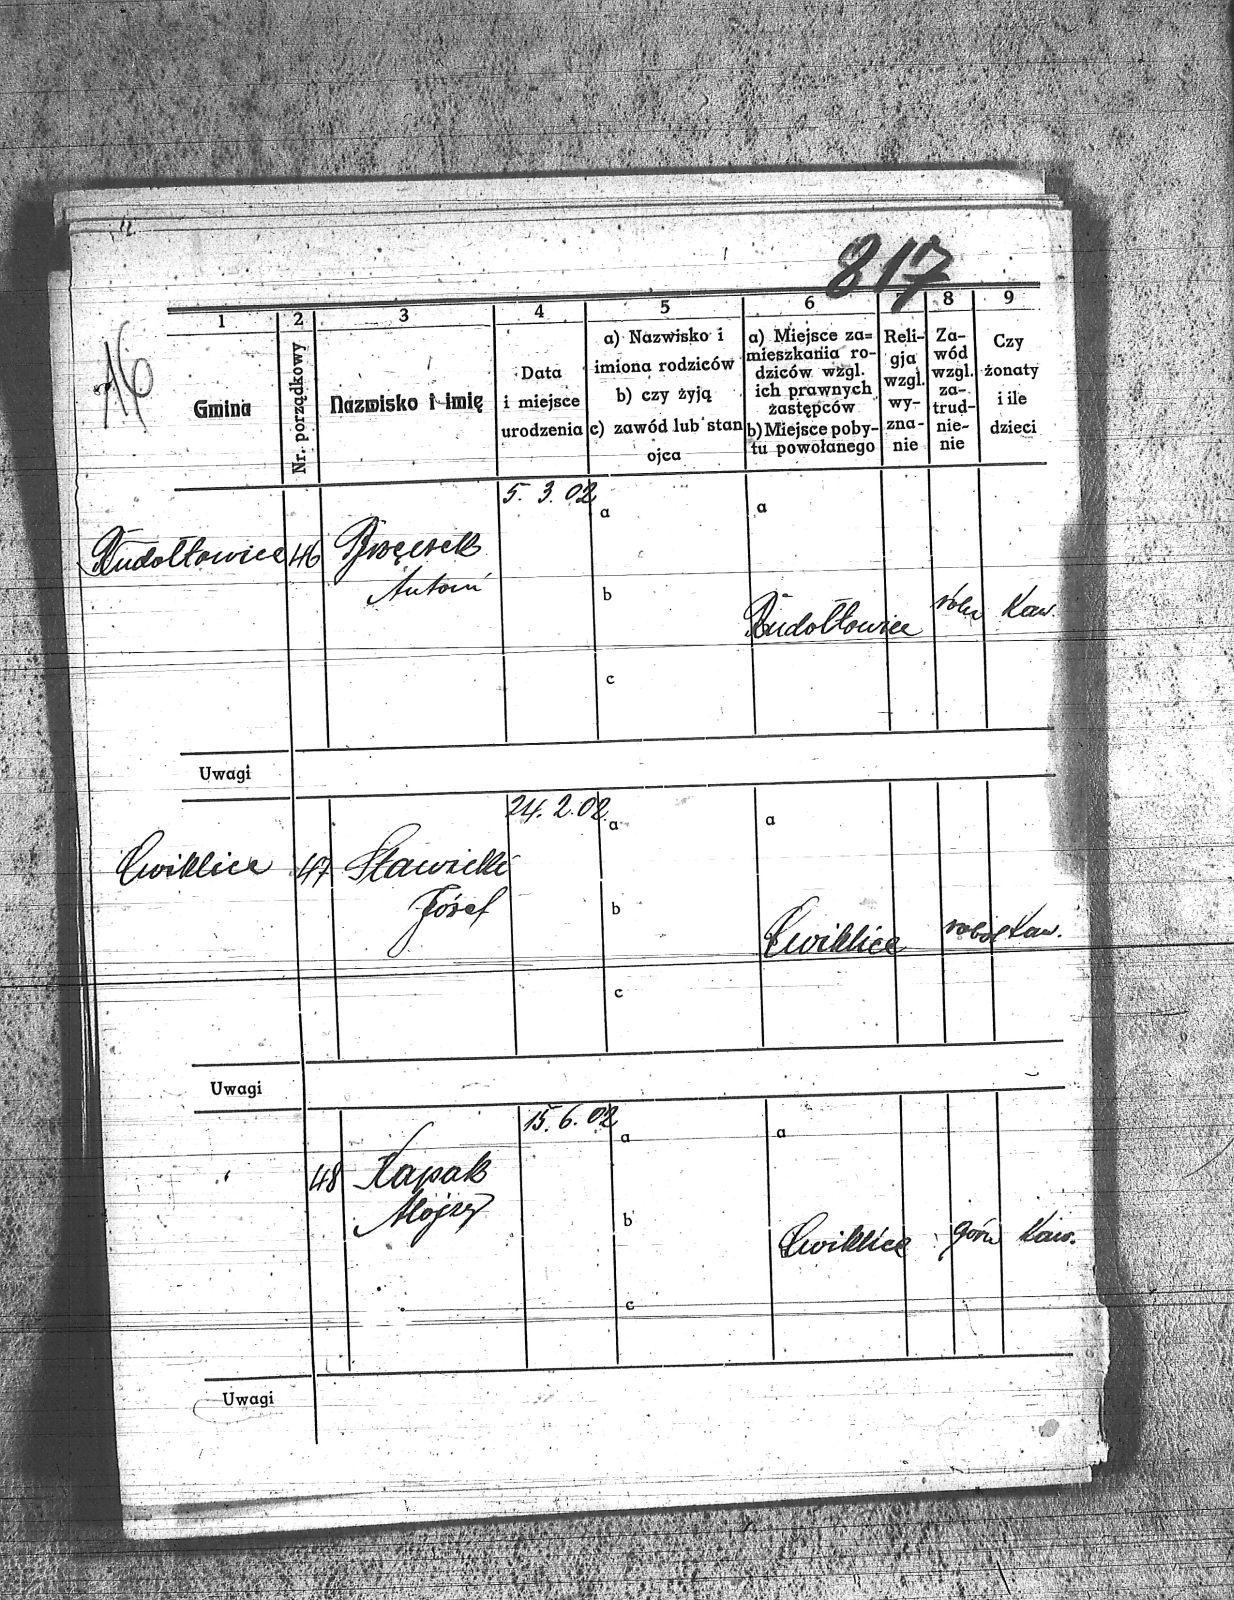 817
16
1
2
3
4
5
6
8
9
Gmina
Nr. porządkowy
Nazwisko i imię
Data
i miejsce
urodzenia
a) Nazwisko i
imiona rodziców
b) czy żyją
c) zawód lub stan
ojca
a) Miejsce za=
mieszkania ro-
dziców wzgl.
ich prawnych
zastępców
b) Miejsce poby-
tu powołanego
Reli-
gja
wzgl.
wy-
zna-
nie
Za-
wód
wzgl.
za-
trud-
nie-
nie
Czy
żonaty
i ile
dzieci
5. 3. 02
a
a
Rudołtowice
46
Antoni
b
Rudołtowice
Kaw.
c
Uwagi
24. 2. 02
a
a
Cwiklice
47
Sławicki
Józef
b
Cwiklice
robot
Kaw.
c
Uwagi
15. 6. 02
a
a
"
48
Kapak
Alojzy
b
Cwiklice
górn
Kaw.
c
Uwagi